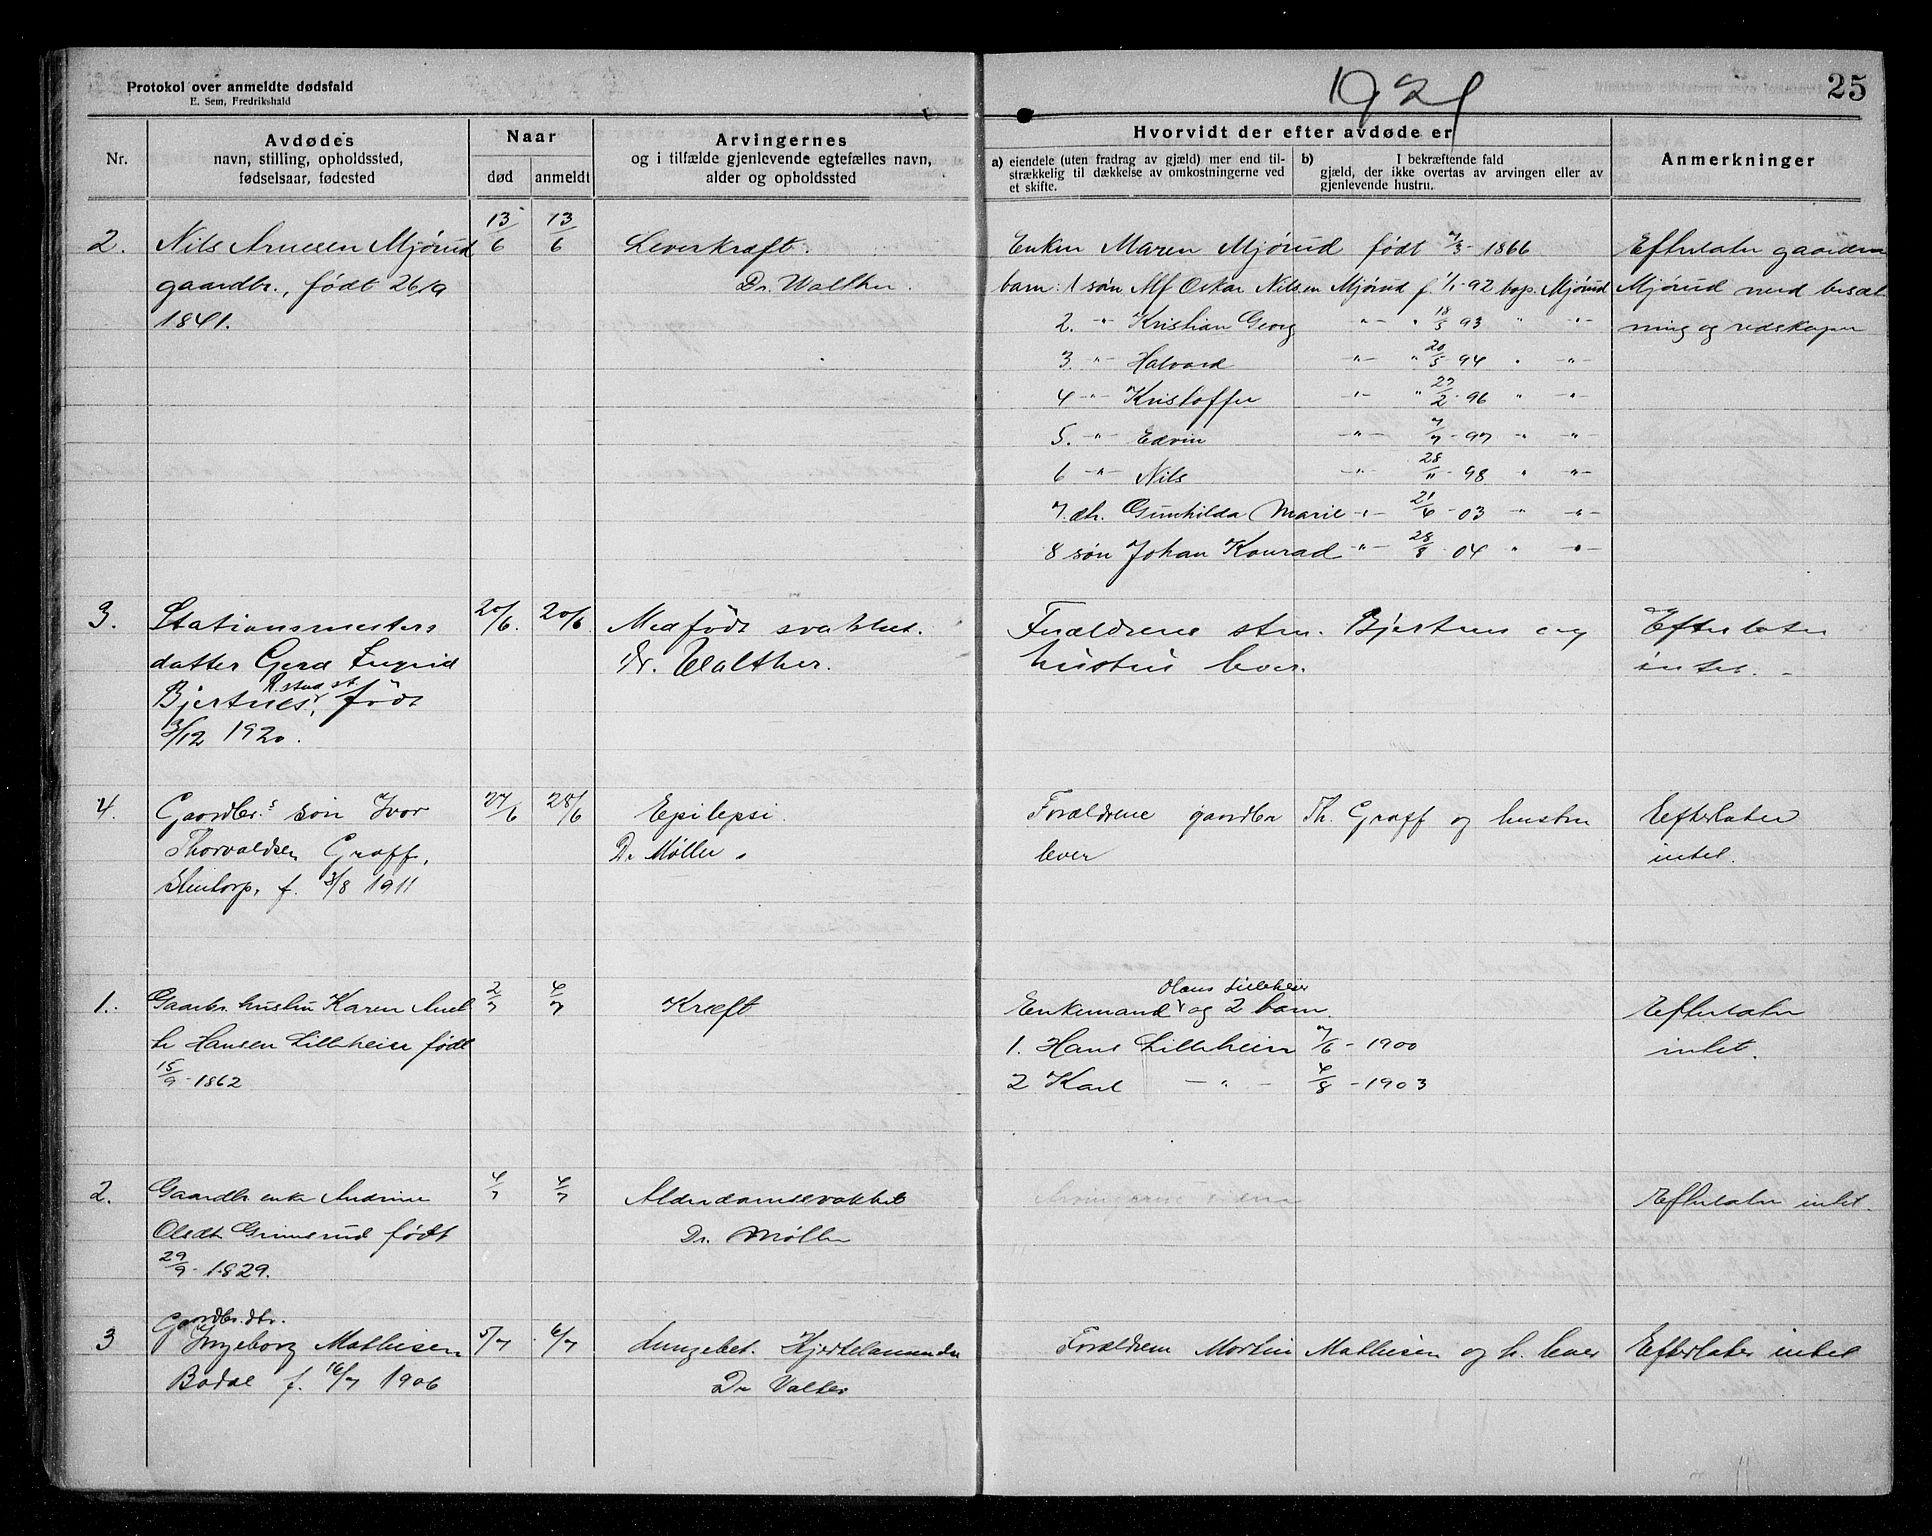 Protokol over anmeldte dødsfald
E. Sem, Fredrikshald
1921
25
Nr.
Avdødes
navn, stilling, opholdssted,
fødselsaar, fødested
Naar
død
anmeldt
Arvingernes
og i tilfælde gjenlevende egtefælles navn,
alder og opholdssted
Hvorvidt der efter avdøde er
a) eiendele (uten fradrag av gjæld) mer end til-
strækkelig til dækkelse av omkostningerne ved
et skifte.
b) I bekræftende fald
gjæld, der ikke overtas av arvingen eller av
gjenlevende hustru.
Anmerkninger
2. Nils Arnesen Mjørud 13/6 13/6 Leverkræft. Enken Maren Mjørud født 7/3 - 1866 Efterlater gaarden
gaardbr., født 26/9 Dr. Walther. barn: 1 søn Alf Oskar Nilsen Mjørud f. 1/1-92 bop. Mjørud Mjørud med besæt
1841. 2. -"- Kristian Georg -"- " 18/5 93 " -"- ning og redskaper
3. -"- Halvard -"- " 20/5 94 " -"-
4 -"- Kristoffer -"- " 27/2 - 96 " -"-
5. -"- Edvin -"- 7/7 - 97 " -"-
6 -"- Nils -"- 28/11 - 98 " -"-
7. dtr. Gunhilda Marie -"- 21/6 - 03 " -"-
8 søn Johan Konrad -"- 28/8 - 04 " -"-
3. Stationsmesters 20/6. 20/6. Medfødt svakhet. Forældrene stm. Bjertnes og Efterlater
datter Gerd Ingrid Dr. Walther. hustru lever. intet. -
R.stad st.
Bjertnes, født
3/12 1920.
4. Gaardbr.s søn Ivar 27/6 28/6 Epilepsi. Forældrene gaardbr Th. Graff og hustru Efterlater
Thorvaldsen Graff, Dr Møller. lever intet.
Stentorp, f. 3/8 1911
Hans Lilleheier
1. Gaarbr. hustru Karen Anet 2/7 4/7 Kræft Enkemand og 2 barn. Efterlater
te Hansen Lilleheier født 1. Hans Lilleheier 7/6 - 1900 intet.
15/9 - 1862 2 Karl -"- 4/8 - 1903
2. Gaardbr enke Andrine 4/7 4/7 Alderdomssvakhet Arvingerne Efterlater intet.
Olsdtr Grimsrud født Dr. Møller
29/9 - 1829.
Gaardbr. dtr.
3 Ingeborg Mathisen 5/7 6/7 Lungebet. Hjertelammelse Forældrene Martin Mathisen og h. lever Efterlater intet
Bødal f. 16/7 1906 Dr Valter